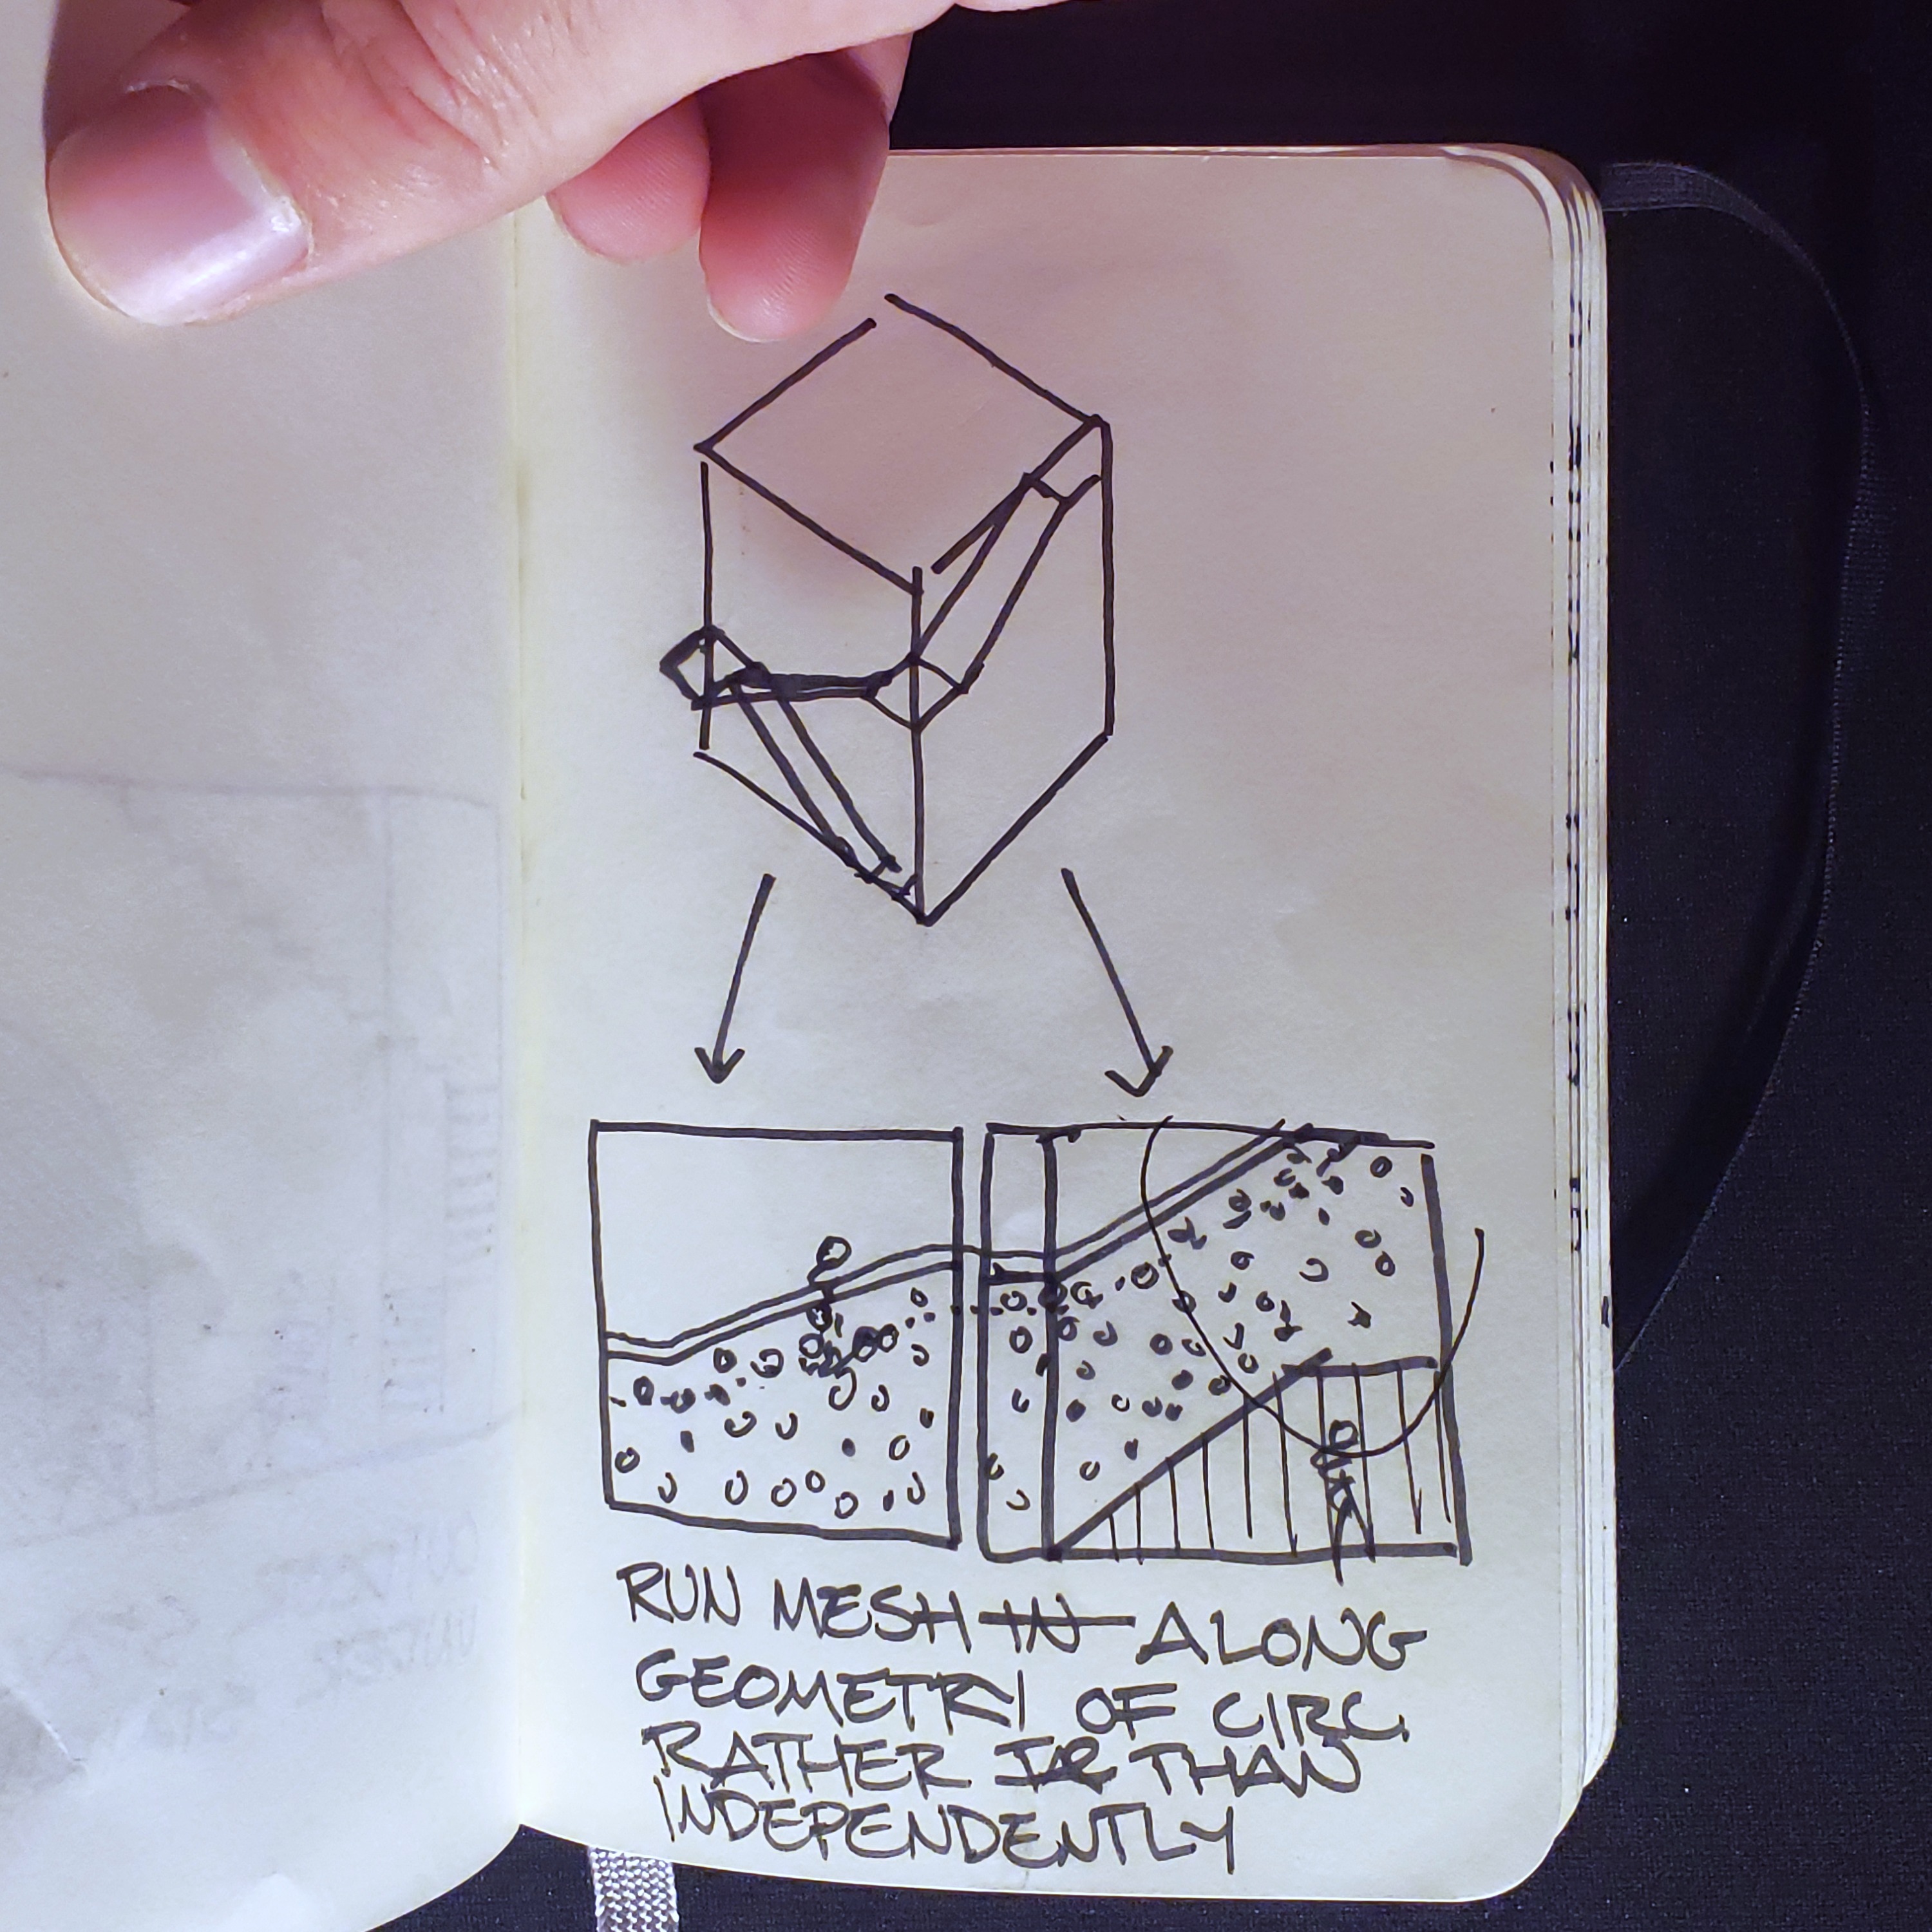 RUN MESH IN ALONG
GEOMETRY OF CIRC.
RATHER THAN
INDEPENDENTLY